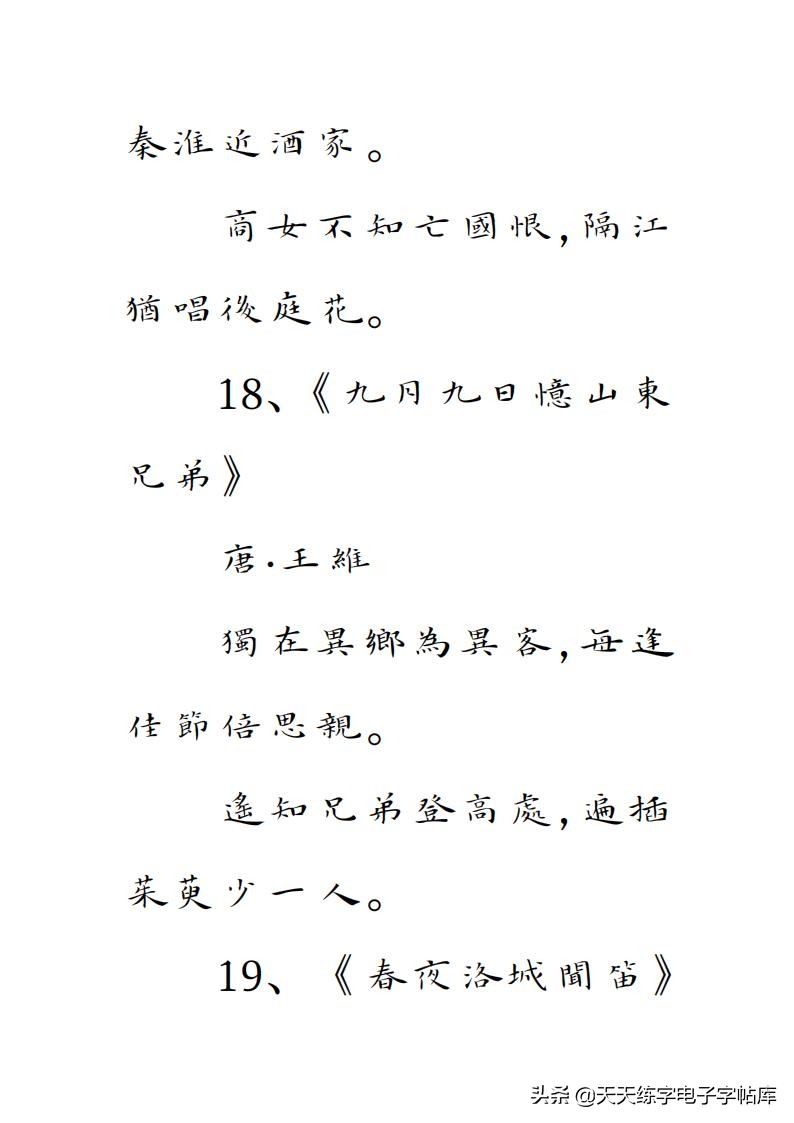 秦淮近酒家。
商女不知亡國恨,隔江
猶唱後庭花。
18、《九月九日憶山東
兄弟》
唐·王維
獨在異鄉為異客,每逢
佳節倍思親。
遙知兄弟登高處,遍插
茱萸少一人。
19、《春夜洛城聞笛》
头条 @天天练字电子字帖库